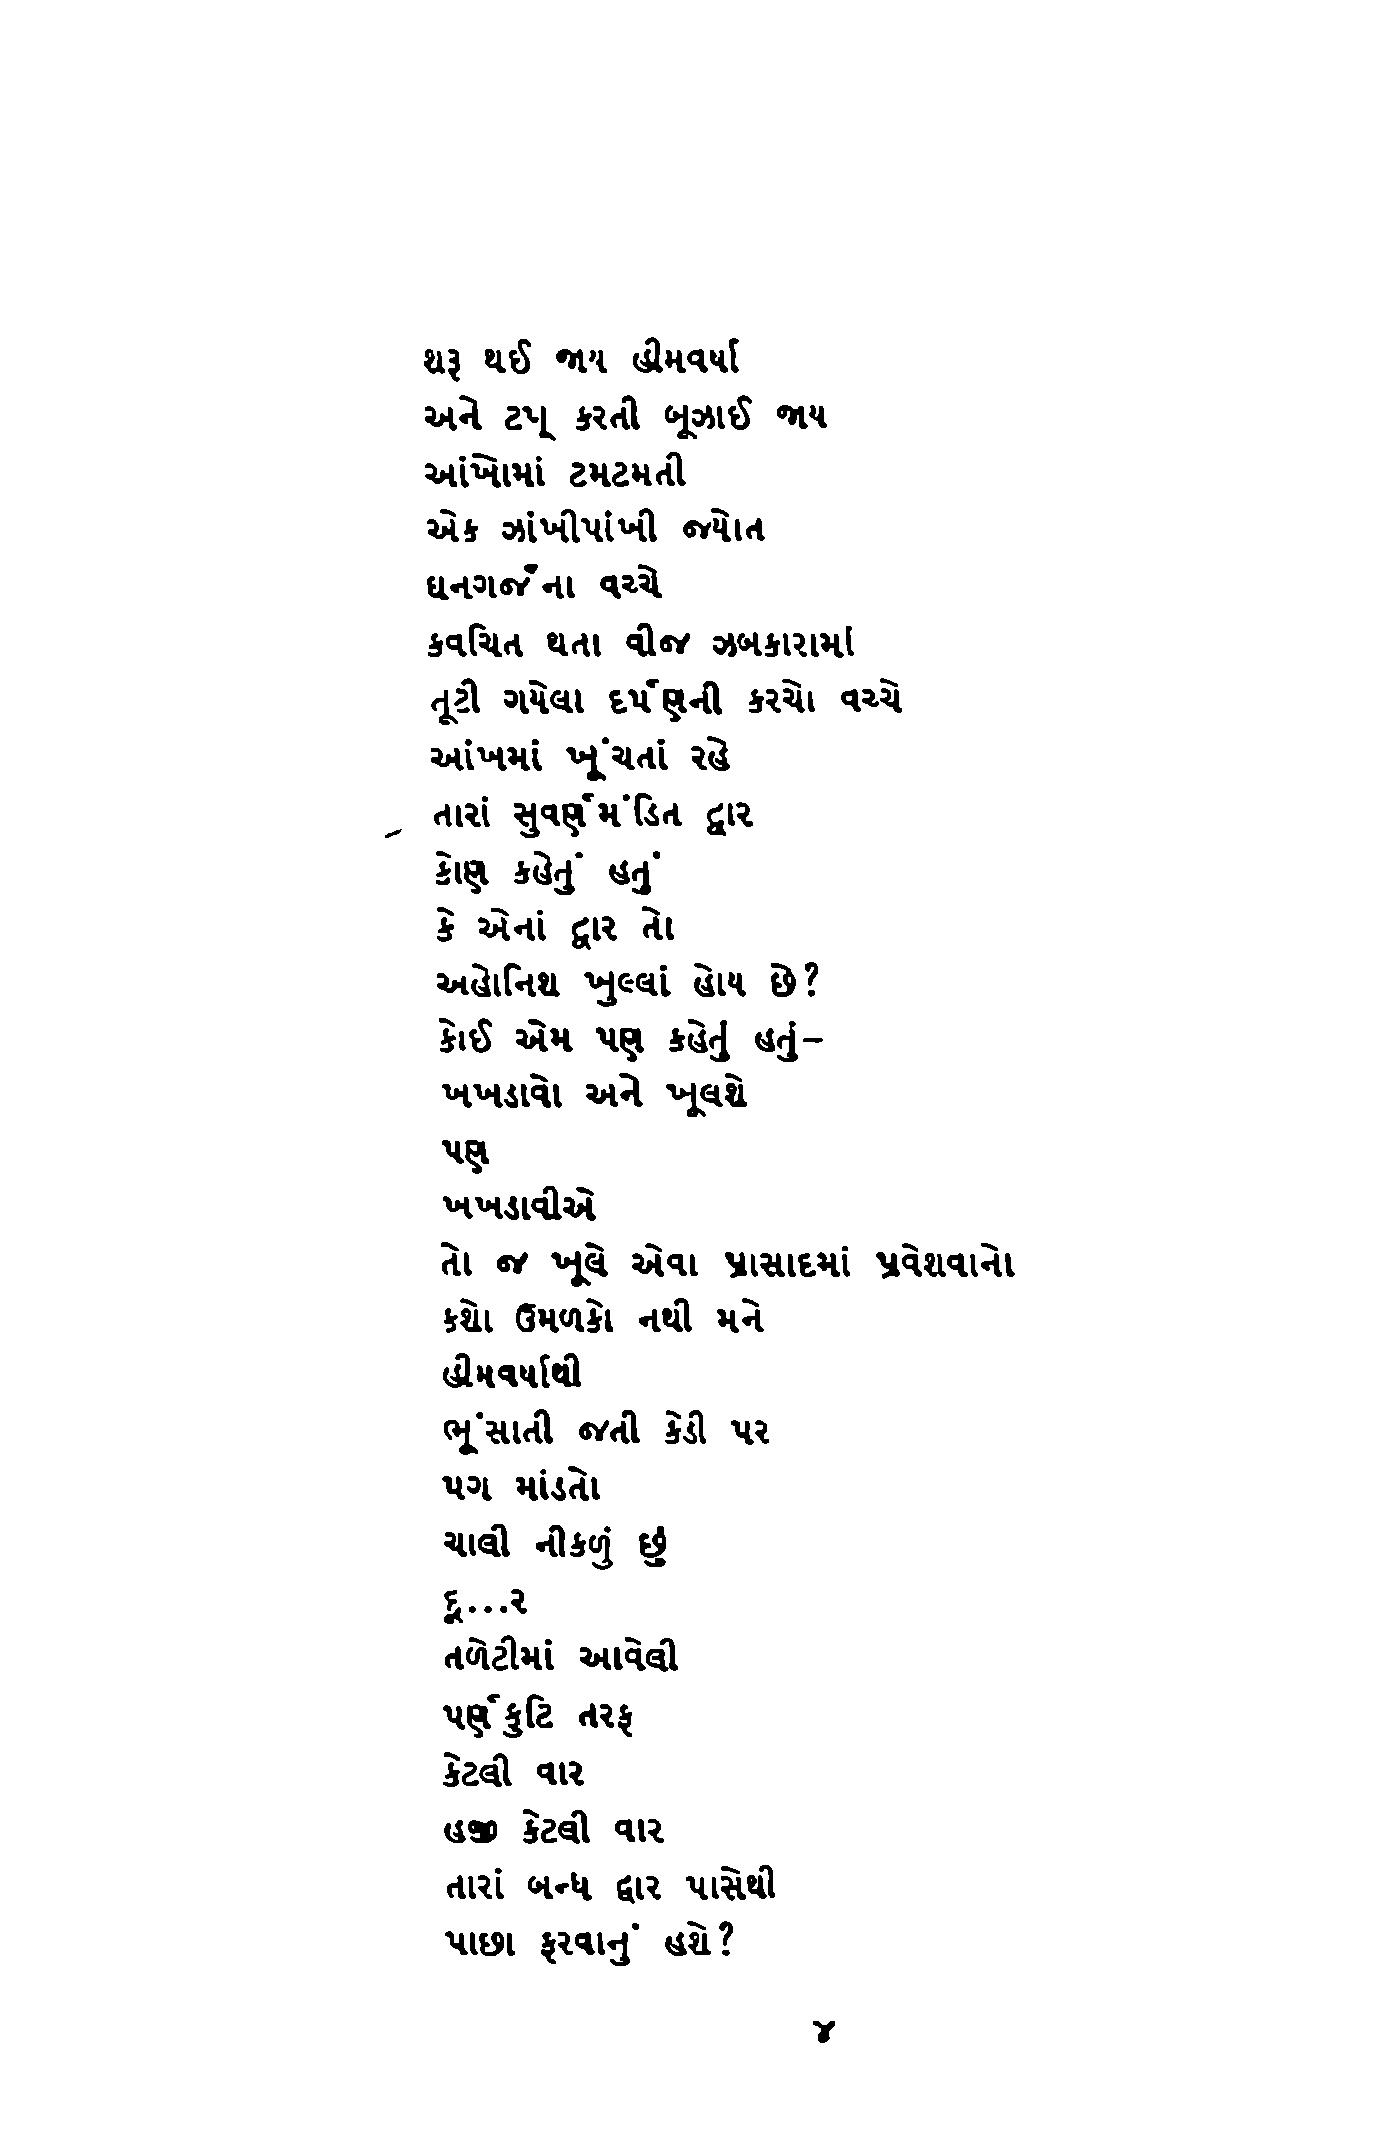 શરૂ થઈ જાય હીમવર્ષા
અને ટપ્ કરતી બૂઝાઈ જાય
આંખોમાં ટમટમતી
એક ઝાંખીપાંખી જ્યોત
ઘનગર્જના વચ્ચે
કવચિત થતા વીજ ઝબકારામાં
તૂટી ગયેલા દર્પણની કરચો વચ્ચે
આંખમાં ખૂંચતાં રહે
તારાં સુવર્ણમંડિત દ્વાર
કોણ કહેતું હતું
કે એનાં દ્વાર તો
અહોનિશ ખુલ્લાં હોય છે?
કોઈ એમ પણ કહેતું હતું–
ખખડાવો અને ખૂલશે
પણ
ખખડાવીએ
તો જ ખૂલે એવા પ્રાસાદમાં પ્રવેશવાનો
કશો ઉમળકો નથી મને
હીમવર્ષાથી
ભૂંસાતી જતી કેડી પર
પગ માંડતો
ચાલી નીકળું છું
દૂ...ર
તળેટીમાં આવેલી
પર્ણકુટિ તરફ
કેટલી વાર
હજી કેટલી વાર
તારાં બન્ધ દ્વાર પાસેથી
પાછા ફરવાનું હશે?
૪